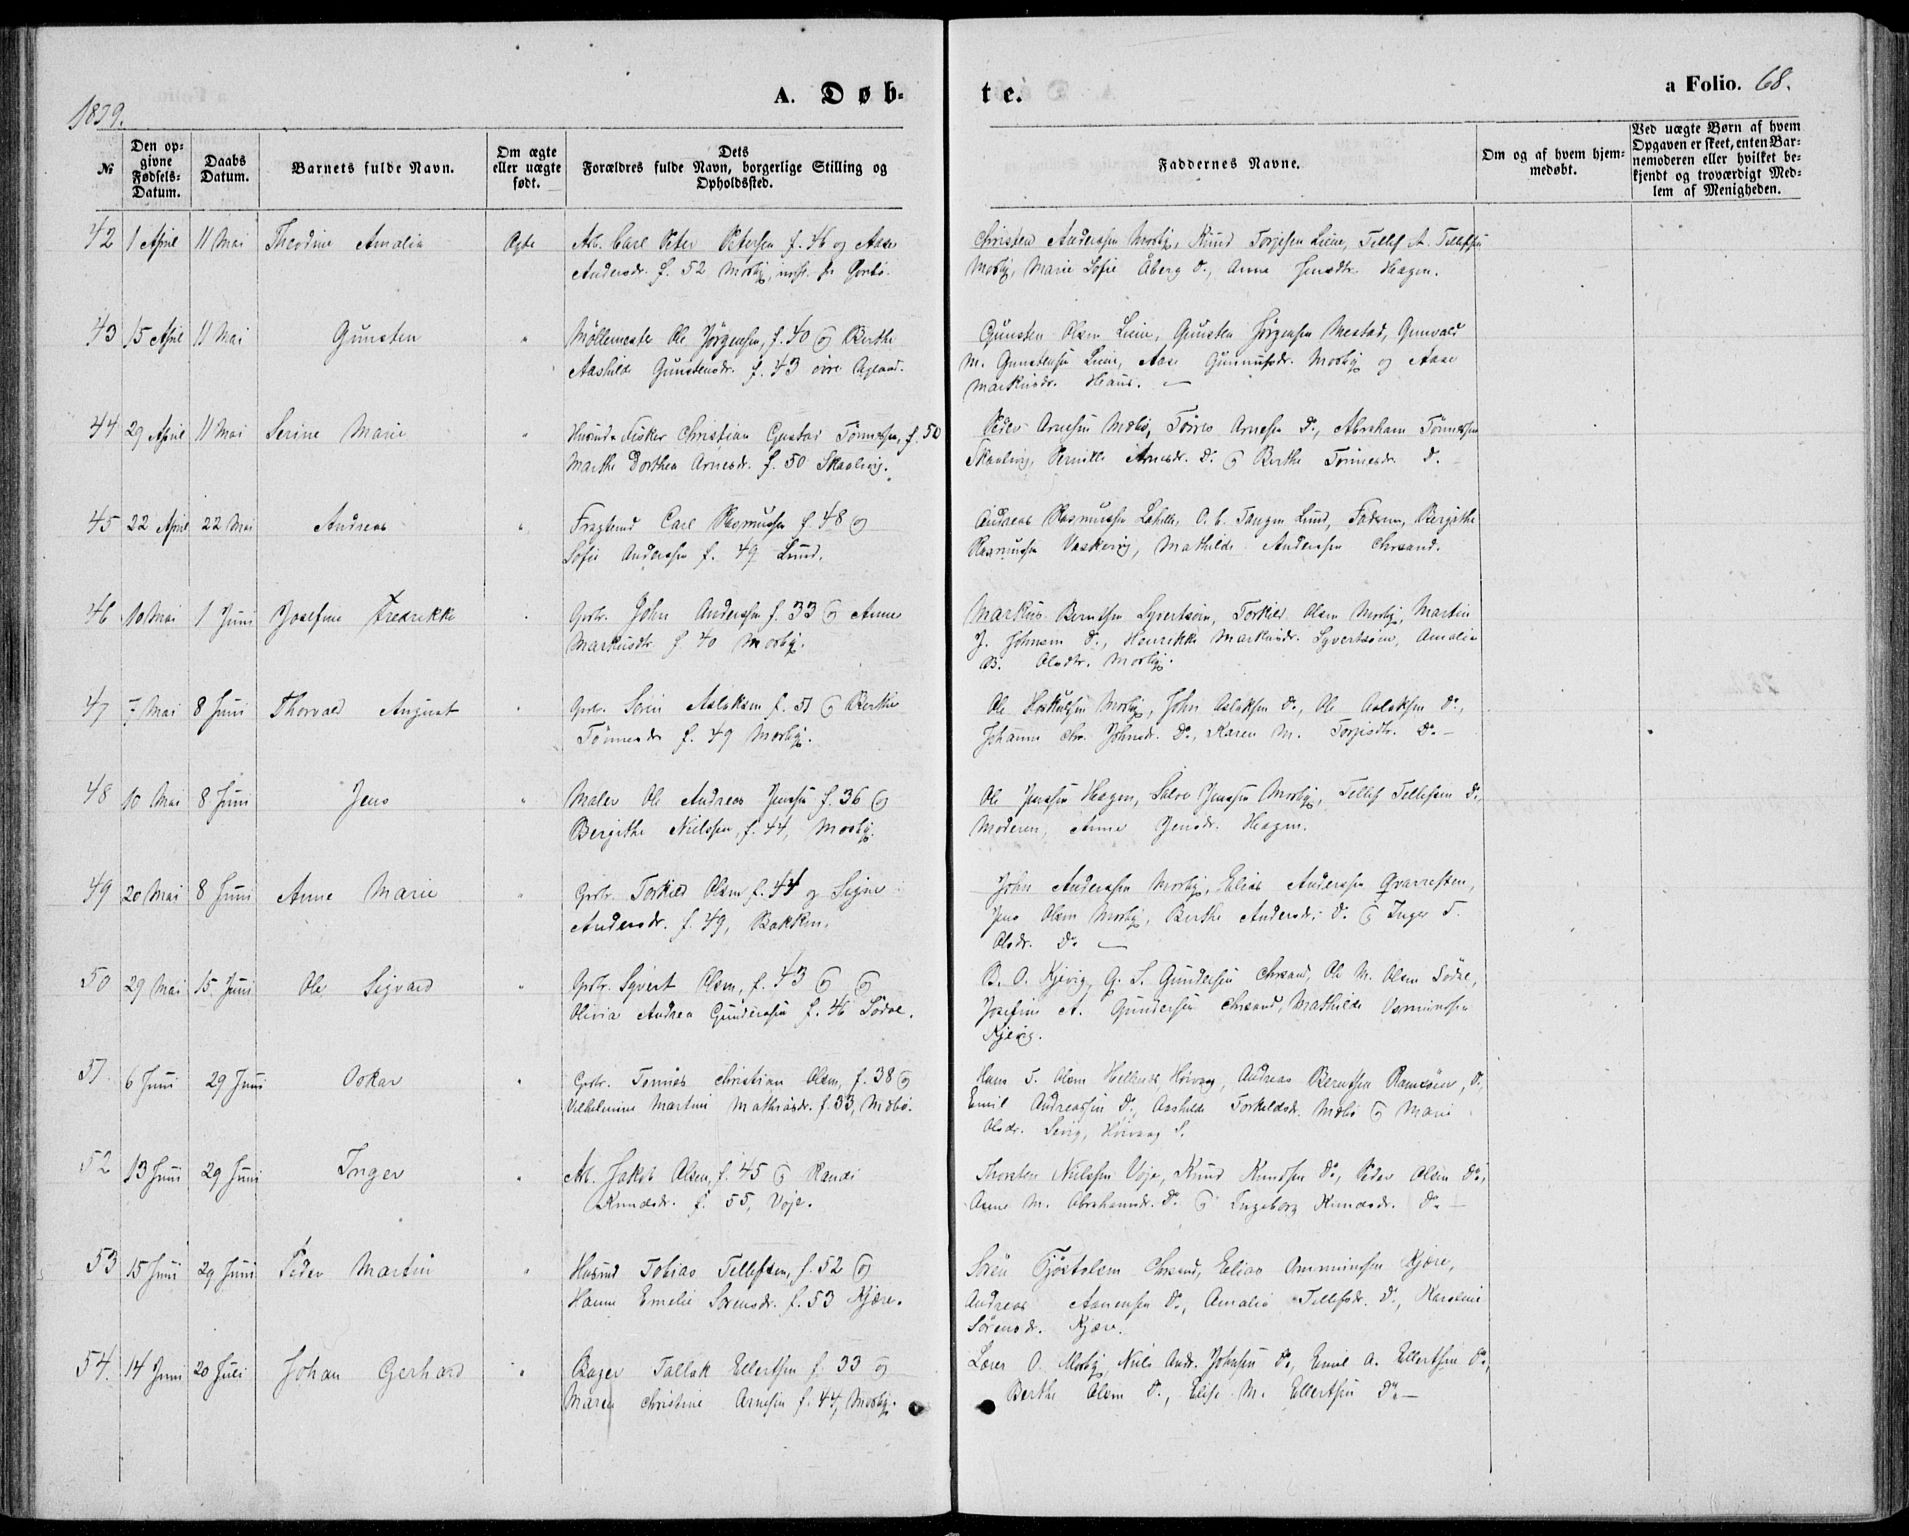 1879.
A. Døb-
te.
a Folio. 68.
№
Den opgivne Fødsels-Datum.
Daabs Datum.
Barnets fulde Navn.
Om ægte eller uægte født.
Dets Forældres fulde Navn, borgerlige Stilling og Opholdssted.
Faddernes Navne.
Om og af hvem hjemmedøbt.
Ved uægte Børn af hvem Opgaven er skeet, enten Barnemoderen eller hvilket bekjendt og troværdigt Medlem af Menigheden.
42 1 April 11 Mai Theodine Amalia Ægte Arb. Carl Peter Petersen f. 46 og Aase
Andersdr. f. 52 Mosby,
Christen Anderssen Mosby, Knud Torjesen Lien, Tellef A. Tellefsen
Mosby, Marie Sofie Åberg Do, Anne Jensdtr. Hægen.
43 15 April 11 Mai Gunsten " Møllemester Ole Jörgensen, f. 40 og Berthe
Aashilde Gunstensdr. f. 43 övre Ageland.
Gunsten Olsen Lien, Gunsten Jörgensen Mestad, Gunvald
M. Gunstensen Lien, Aase Mosby og Aase
Markusdr. Haus. —
44 29 April 11 Mai Serine Marie " Husmd & Fisker Christian Gustav Tönnesen, f. 50
Marthe Dorthea Arnesdr. f. 50 Skaalevig.
Peder Arnesen Mæbö, Törres Arnesen Do, Abraham Tönnesen
Skaalevig, Pernille Arnesdr. Do og Berthe Tönnesdr. Do
45 22 April 22 Mai Andreas " Fragtemd Carl Rasmussen f. 48 og
Sofie Anderssen f. 49 Lund.
Andreas Rasmussen O. C. Tangen Lund, Faderen, Bergithe
Rasmussen Mathilde Anderssen Chrsand.
46 10 Mai 1 Juni Josefine Fredrikke " Grbr. John Anderssen f. 33 og Anne
Markusdtr. f 40 Mosby.
Markus Berntsen Syvertsöen, Torkild Olsen Mosby, Martin
J. Johnsen Do, Henrikke Markusdr. Syvertsöen, Amalia
B. Olsdtr. Mosby.
47 7 Mai 8 Juni Thorvald August " Grbr. Sören Aslaksen f. 51 og Berthe
Tönnesdr f. 49 Mosby.
Ole Mosby, John Aslaksen Do, Ole Aslaksen Do,
Johanne Chr. Johnsdr. Do, Karen M. Torjesdtr. Do —
48 10 Mai 8 Juni Jens " Maler Ole Andreas Jenssen f. 36 og
Bergithe Nielssen, f. 44, Mosby.
Ole Jenssen Hægen, Salve Jenssen Mosby, Tellef Tellefsen Do,
Moderen, Anne Jensdr. Hægen.
49 20 Mai 8 Juni Anne Marie " Grbr. Torkild Olsen, f. 44 og Signe
Andersdr. f. 49, Bakken.
John Anderssen Mosby, Elias Anderssen Qvarresten,
Jens Olsen Mosby, Berthe Andersdr. Do og Inger T.
Olsdr. Do —
50 29 Mai 15. Juni Ole Sigvard " Grbr. Syvert Olsen, f. 43 og
Olivia Andrea Gunderssen f. 46 Södal.
B. O. Kjevig, G. S. Gundersen Chrsand, Ole M. Olsen Södal,
Josefine A. Gundersen Chrsand, Mathilde
Kjevig.
51 6 Juni 29 Juni Oskar " Grbr. Tönnes Christian Olsen, f. 38 og
Vilhelmine Martine Mathiasdr. f. 33, Mæbö.
Hans T. Olsen Höivaag, Andreas Berntsen Ramsöen, Do,
Emil Andreassen Do, Aashilde Torkildsdr. Mæbö og Marie
Olsdr. Höivaag S.
52 13 Juni 29 Juni Inger " Arb. Jakob Olsen, f. 45 og Randi
Knudsdr. f. 55, Voje.
Thorsten Nielssen Voje, Knud Knudsen Do, Peder Olsen Do,
Anne M. Abrahamsdr. Do og Ingeborg Knudsdr. Do —
53 15 Juni 29 Juni Peder Martin " Husmd Tobias Tellefsen, f. 52 og
Hanne Emelie Sörensdr. f. 53 Kjære.
Sören Chrsand, Elias Kjære,
Andreas Aanensen Do, Amalia Tellefsdr. Do, Karoline
Sörensdr. Kjære.
54. 14 Juni 20 Juli Johan Gerhard " Bager Tallak Ellertsen f. 33 og
Maren Christine Arnesen f. 44, Mosby.
Lærer O. Mosby, Niels Andr. Johnsen Do, Emil A. Ellertsen Do,
Berthe Olsen Do, Elise M. Ellertsen Do —